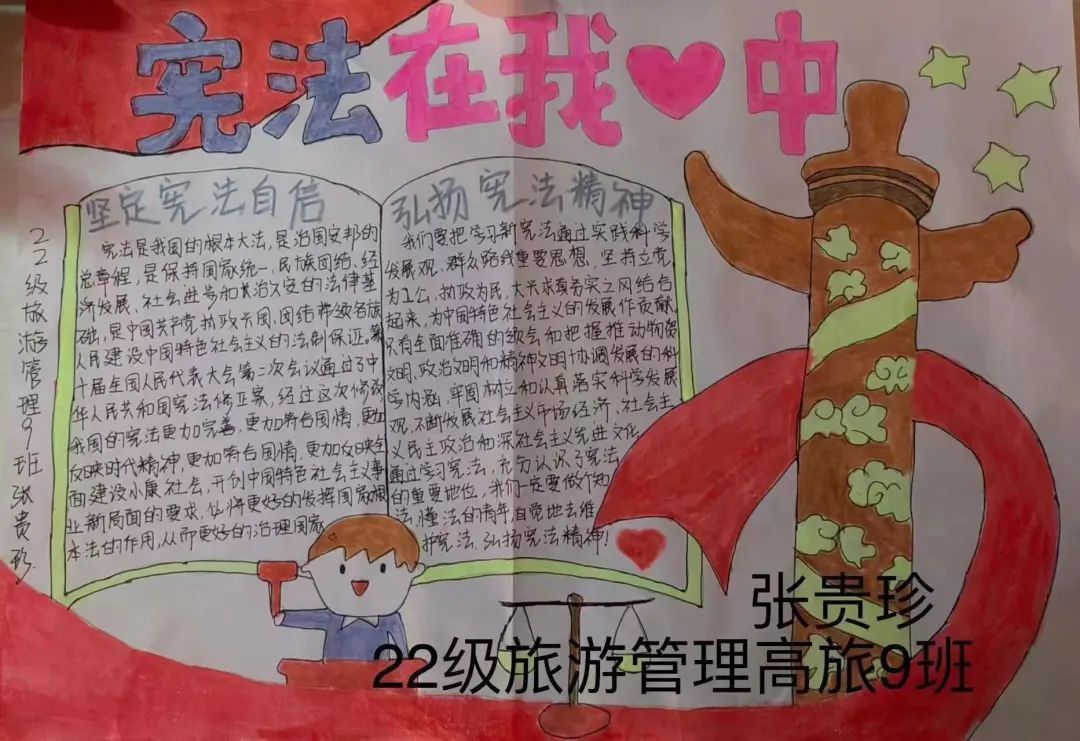 宪法在我中
坚定宪法自信
宪法是我国的根本大法,是治国安邦的
总章程,是保持国家统一、民族团结、经
济发展、社会进步和长治久安的法律基
础,是中国共产党执政兴国、团结带领各族
人民建设中国特色社会主义的法制保证。第
十届全国人民代表大会第二次会议通过了中
华人民共和国宪法修正案,经过这次修改
我国的宪法更加完善,更加符合国情,更加
反映时代精神,更加符合国情,更加反映全
面建设小康社会,开创中国特色社会主义事
业新局面的要求,必将更好的发挥国家根
本法的作用,从而更好的治理国家
弘扬宪法精神
我们要把学习新宪法通过实践科学
发展观、群众路线重要思想,坚持立党
为公,执政为民,大兴求真务实之风结合
起来,为中国特色社会主义的发展作贡献。
只有全面准确的领会和把握推动物质
文明、政治文明和精神文明协调发展的科
学内涵,牢固树立和认真落实科学发展
观,不断发展社会主义市场经济,社会主
义民主政治和深社会主义先进文化
通过学习宪法,充分认识了宪法
的重要地位,我们一定要做个知
法,懂法的青年,自觉地去维
护宪法,弘扬宪法精神!
22级旅游管理9班张贵珍
张贵珍
22级旅游管理高旅9班